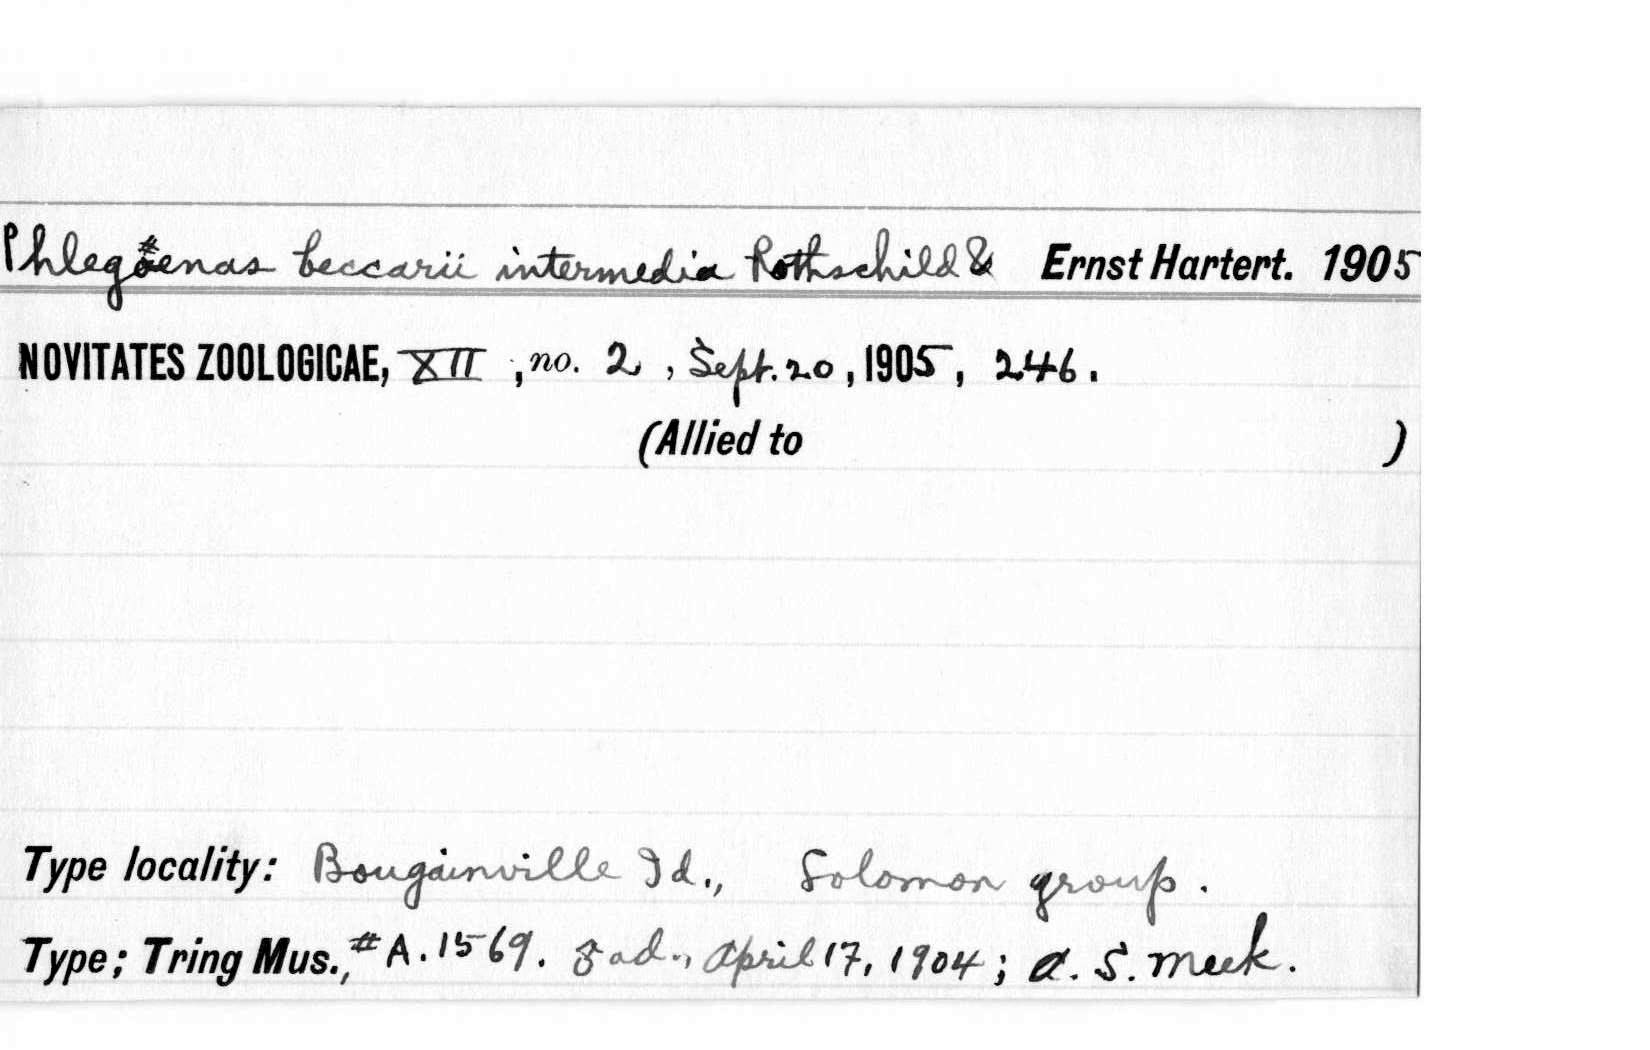 Phlegoenas beccarii intermedia Rothschild & Ernst Hartert. 1905
NOVITATES ZOOLOGICAE, XII, no. 2, Sept. 20, 1905, 246.
(Allied to )
Type locality: Bougainville Id., Solomon group.
Type; Tring Mus., # A. 1569. ad., April 17, 1904; A. S. Meek.